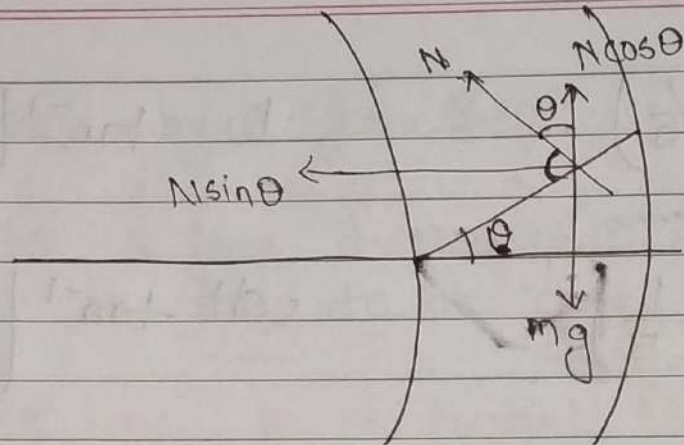 N
N cosθ
θ
N sinθ
θ
mg